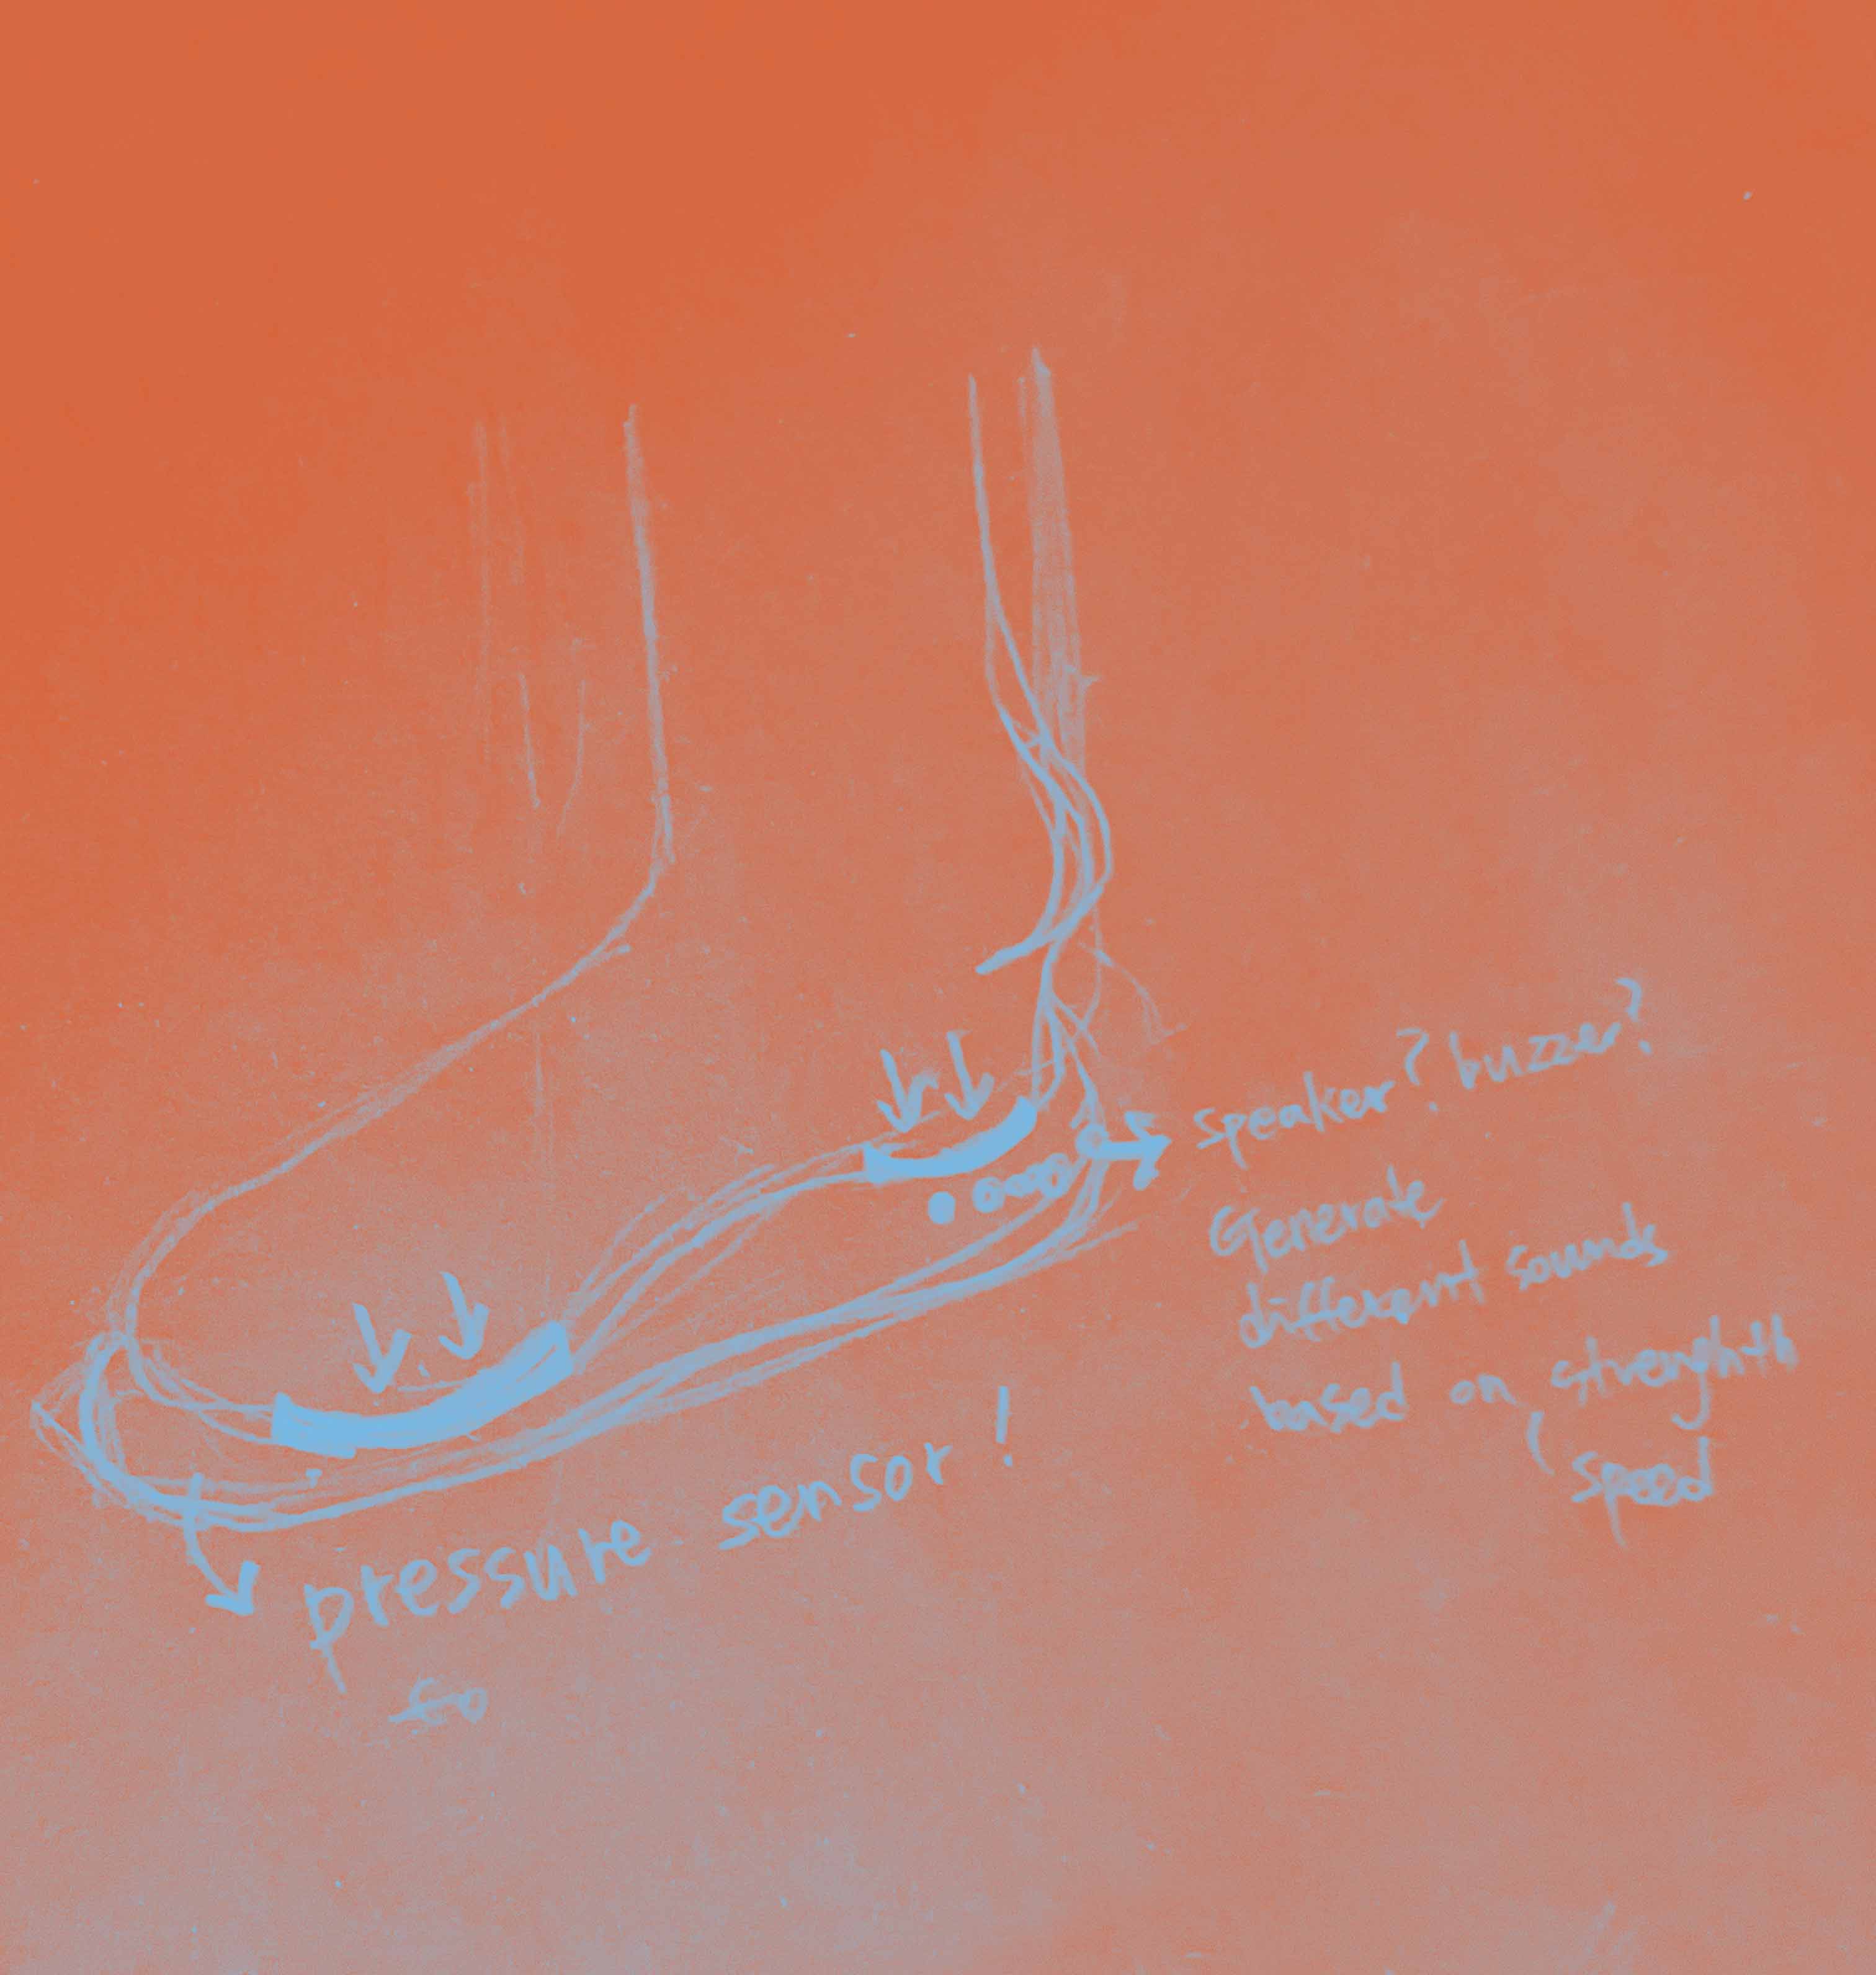 speaker? buzzer?
Generate
different sounds
based on strenghth
speed
pressure sensor!
fo